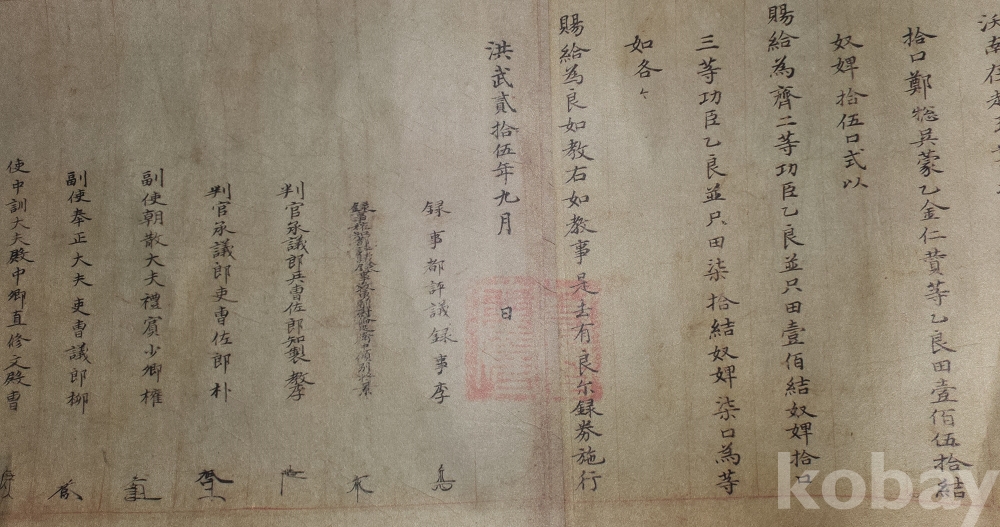 拾口鄭摠吳蒙乙金仁賛等乙良田壹佰伍拾結
奴婢拾伍口式以
賜給為齊二等功臣乙良並只田壹佰結奴婢拾口
三等功臣乙良並只田柒拾結奴婢柒口為等
如各々
賜給為良如教右如教事是去有良尒録券施行
洪武貳拾伍年九月 日
録事都評議録事李
判官承議郎兵曹佐郎知製教李
判官承議郎吏曹佐郎朴
副使朝散大夫禮賓少卿權
副使奉正大夫吏曹議郎柳
使中訓大夫殿中卿直修文殿曹
kobay